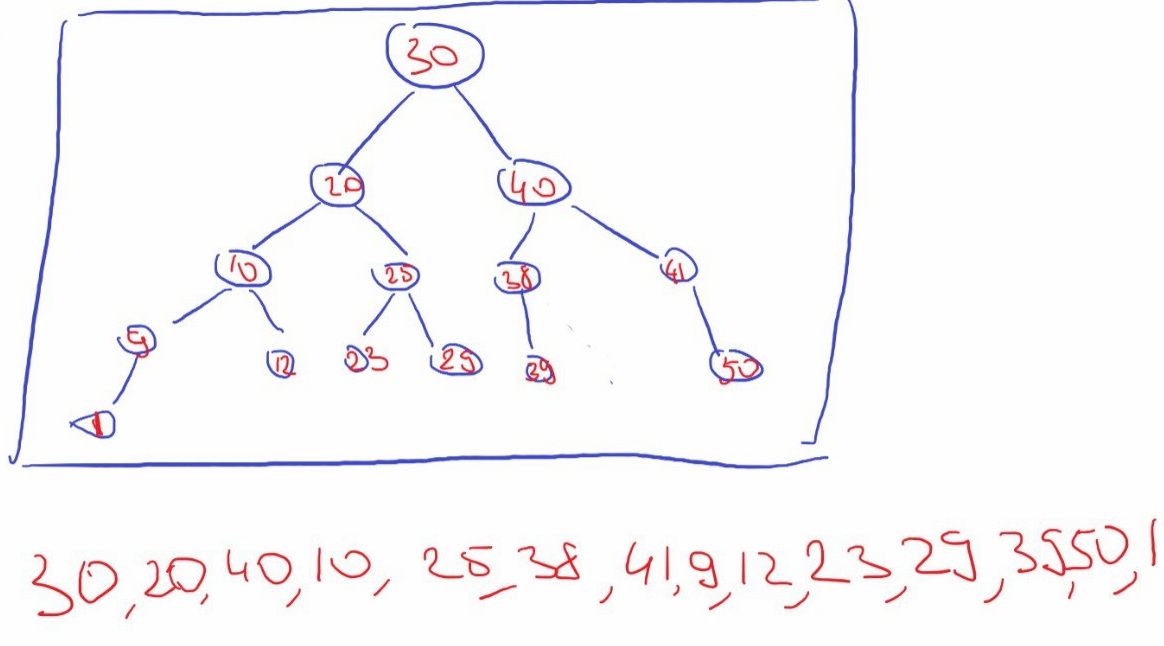 30
20 40
10 25 38 41
9 12 23 29 39 50
1
30, 20, 40, 10, 25, 38, 41, 9, 12, 23, 29, 39, 50, 1